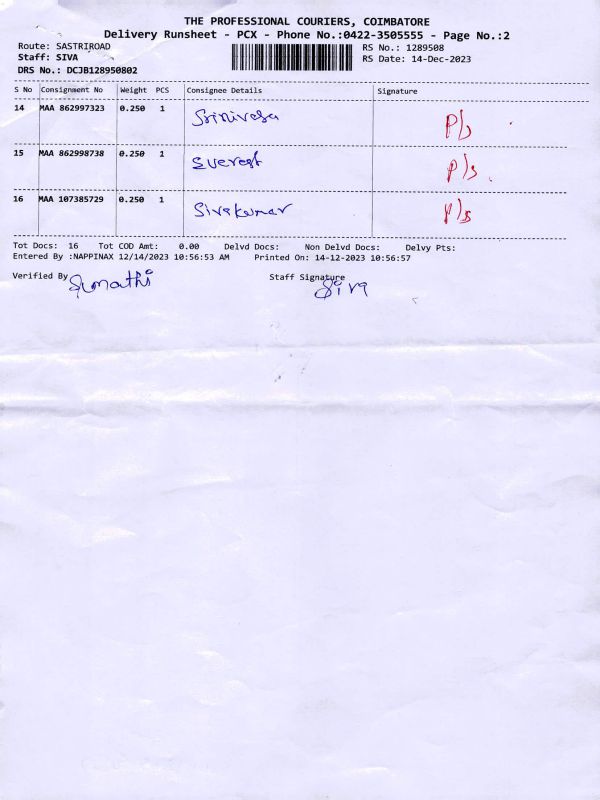 THE PROFESSIONAL COURIERS, COIMBATORE
Delivery Runsheet - PCX - Phone No.:0422-3505555 - Page No.:2
Route: SASTRIROAD RS No.: 1289508
Staff: SIVA RS Date: 14-Dec-2023
DRS No.: DCJB128950802
S No Consignment No Weight PCS Consignee Details Signature
14 MAA 862997323 0.250 1 Srinivasa P/s
15 MAA 862998738 0.250 1 Everest P/s
16 MAA 107385729 0.250 1 Sivakumar P/s
Tot Docs: 16 Tot COD Amt: 0.00 Delvd Docs: Non Delvd Docs: Delvy Pts:
Entered By :NAPPINAX 12/14/2023 10:56:53 AM Printed On: 14-12-2023 10:56:57
Verified By Sumathi Staff Signature Siva